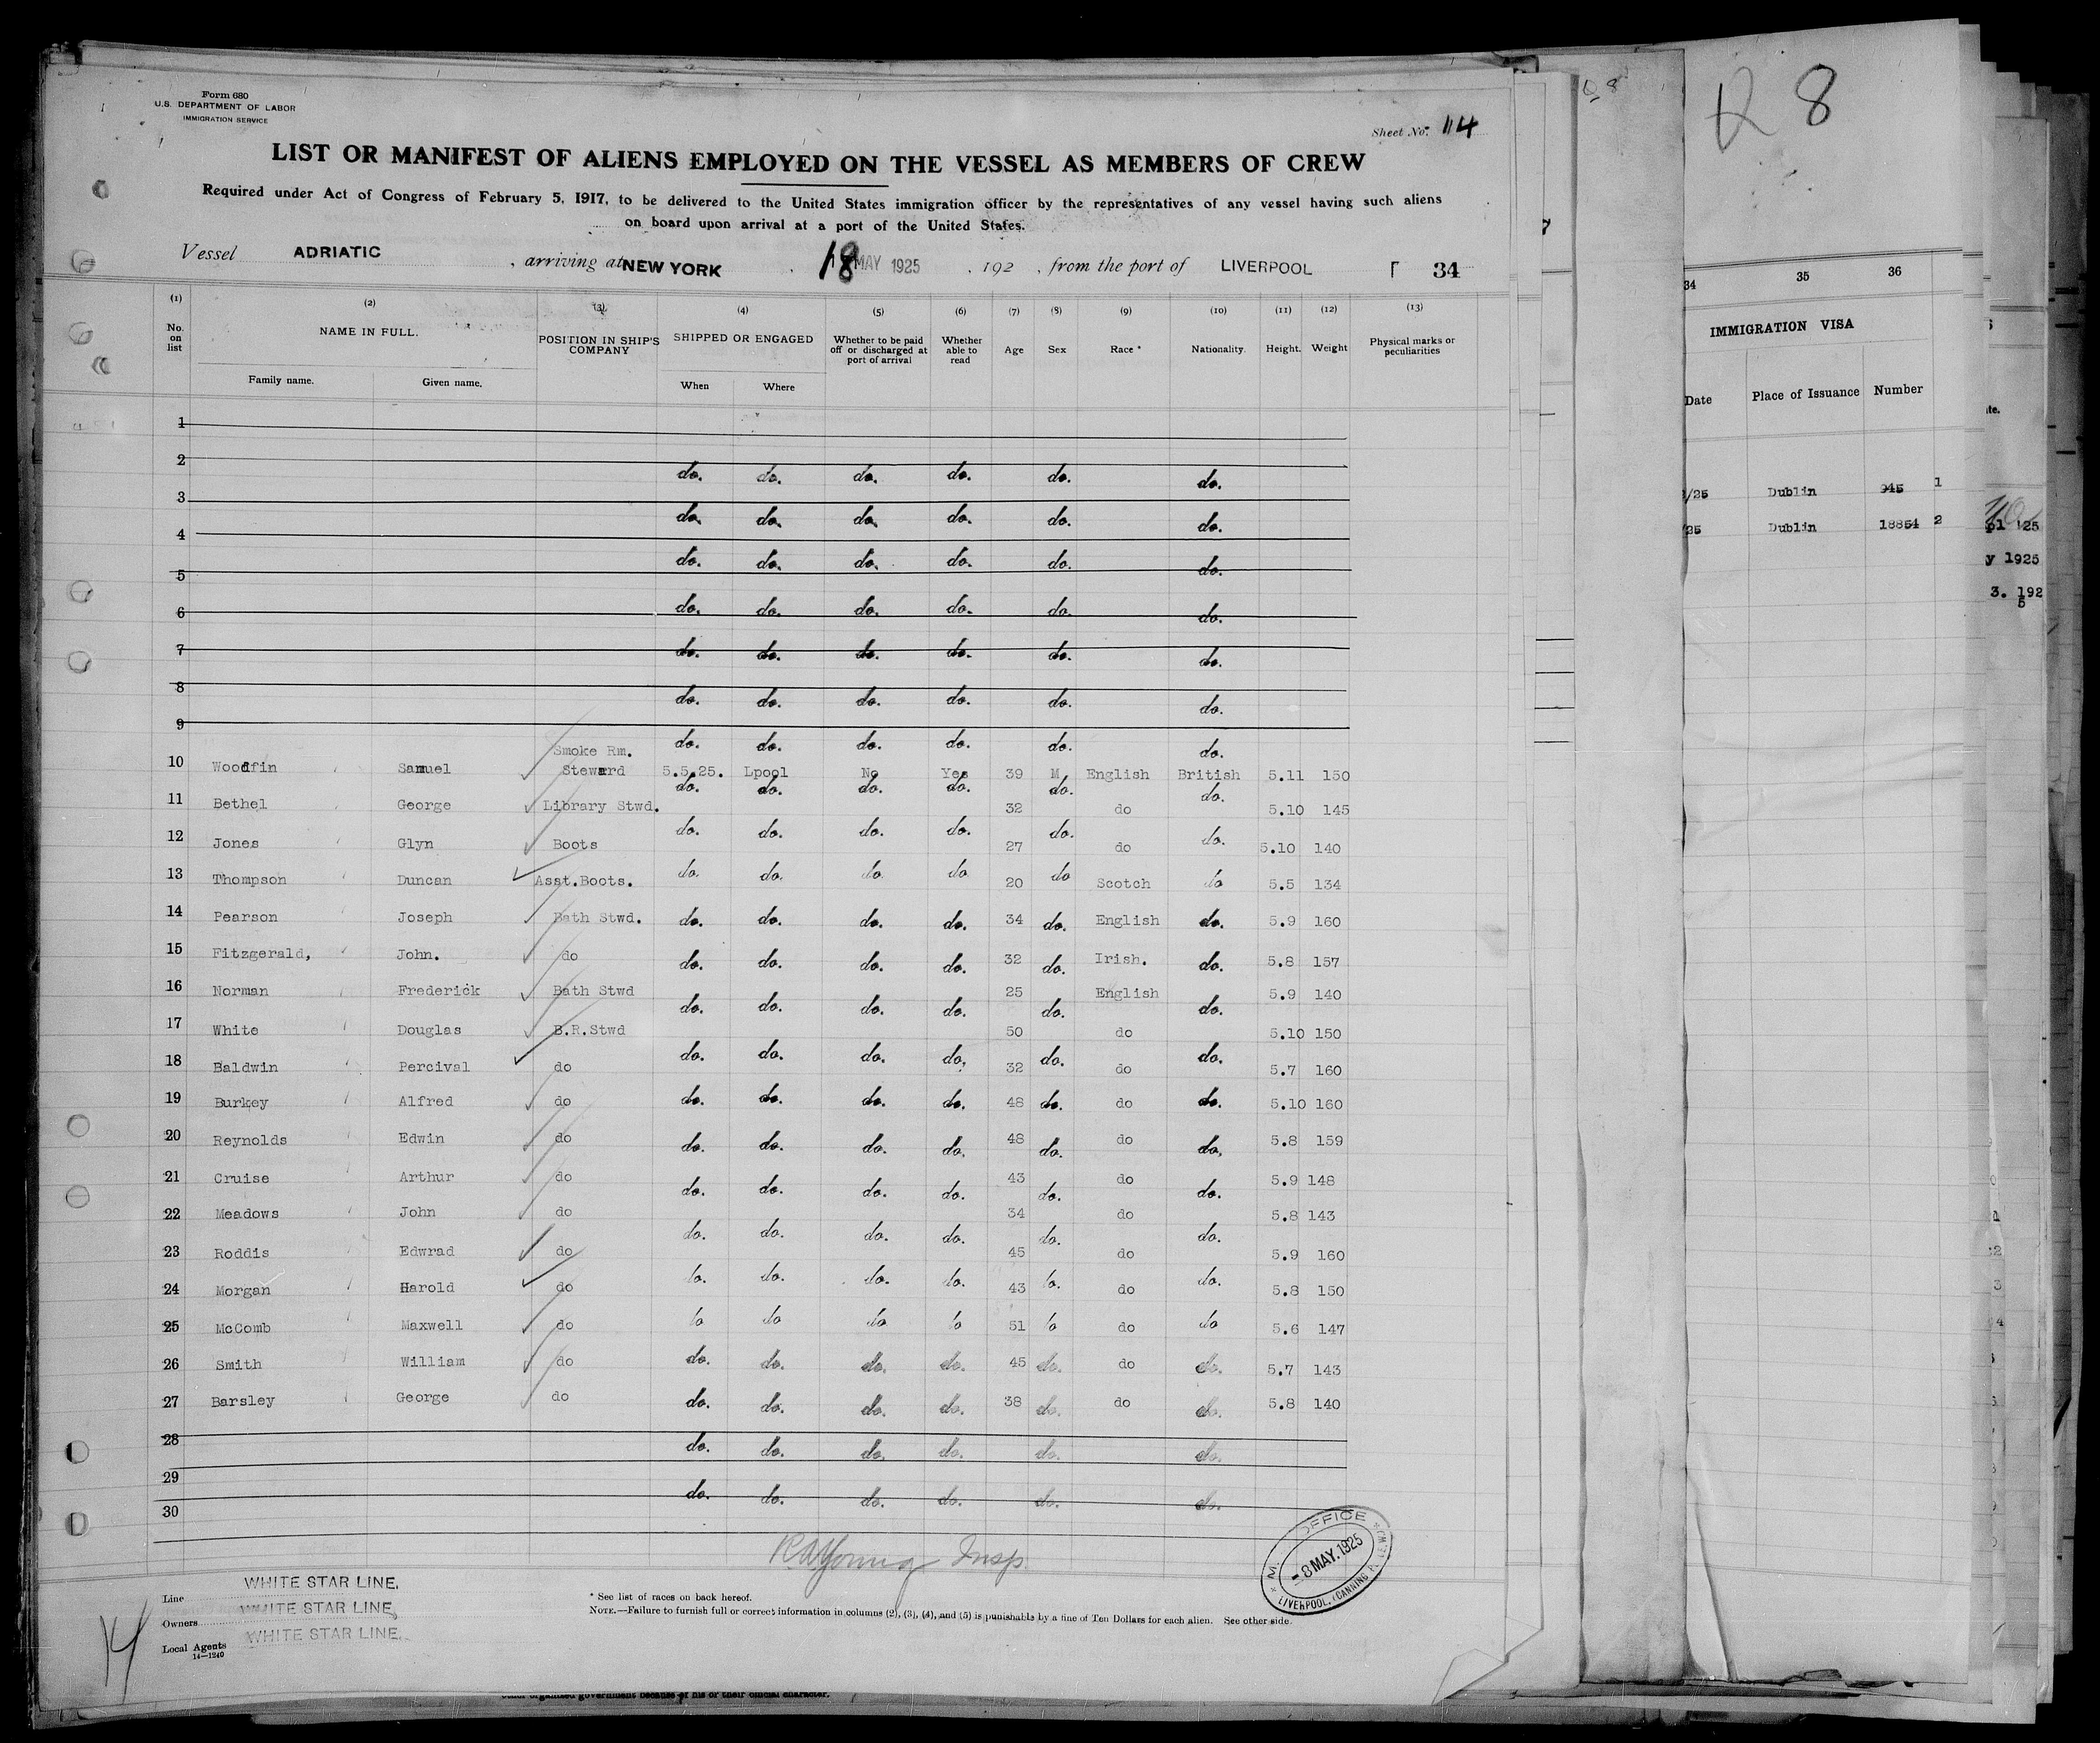 Form 680
U.S. DEPARTMENT OF LABOR
IMMIGRATION SERVICE
Sheet No. 114
LIST OR MANIFEST OF ALIENS EMPLOYED ON THE VESSEL AS MEMBERS OF CREW
Required under Act of Congress of February 5, 1917, to be delivered to the United States immigration officer by the representatives of any vessel having such aliens
on board upon arrival at a port of the United States.
Vessel ADRIATIC, arriving at NEW YORK 18 MAY 1925, 192 , from the port of LIVERPOOL 34
(1) (2) (3) (4) (5) (6) (7) (8) (9) (10) (11) (12) (13)
No. on list NAME IN FULL. POSITION IN SHIP'S COMPANY SHIPPED OR ENGAGED Whether to be paid off or discharged at port of arrival Whether able to read Age Sex Race * Nationality. Height. Weight Physical marks or peculiarities
Family name. Given name. When Where
1
2 do. do. do. do. do. do.
3 do. do. do. do. do. do.
4 do. do. do. do. do. do.
5 do. do. do. do. do. do.
6
7 do. do. do. do. do. do.
8 do. do. do. do. do. do.
9 do. do. do. do. do. do.
10 Woodfin Samuel Smoke Rm. Steward 5.5.25. Lpool No Yes 39 M English British 5.11 150
11 Bethel George Library Stwd. do. do. do. do. 32 do. do do. 5.10 145
12 Jones Glyn Boots do. do. do. do. 27 do. do do. 5.10 140
13 Thompson Duncan Asst.Boots. do. do. do. do 20 do Scotch do 5.5 134
14 Pearson Joseph Bath Stwd. do. do. do. do. 34 do. English do. 5.9 160
15 Fitzgerald, John. do do. do. do. do. 32 do. Irish. do. 5.8 157
16 Norman Frederick Bath Stwd do. do. do. do. 25 do. English do. 5.9 140
17 White Douglas B.R.Stwd do. do. do. do. 50 do. do do. 5.10 150
18 Baldwin Percival do do. do. do. do. 32 do. do do. 5.7 160
19 Burkey Alfred do do. do. do. do. 48 do. do do. 5.10 160
20 Reynolds Edwin do do. do. do. do. 48 do. do do. 5.8 159
21 Cruise Arthur do do. do. do. do. 43 do. do do. 5.9 148
22 Meadows John do do. do. do. do. 34 do. do do. 5.8 143
23 Roddis Edwrad do do. do. do. do. 45 do. do do. 5.9 160
24 Morgan Harold do do. do. do. do. 43 do. do do. 5.8 150
25 McComb Maxwell do do do do do 51 do do do 5.6 147
26 Smith William do do. do. do. do. 45 do. do do. 5.7 143
27 Barsley George do do. do. do. do. 38 do. do do. 5.8 140
28 do. do. do. do. do. do.
29 do. do. do. do. do. do.
30
RAYoung Insp.
OFFICE
-8 MAY.1925
LIVERPOOL, (CANNING
Line WHITE STAR LINE.
Owners WHITE STAR LINE.
Local Agents WHITE STAR LINE.
14—1240
* See list of races on back hereof.
NOTE.—Failure to furnish full or correct information in columns (2), (3), (4), and (5) is punishable by a fine of Ten Dollars for each alien. See other side.
14
other organised government because of his or their official character.
R 8
34 35 36
IMMIGRATION VISA
Date Place of Issuance Number
/25 Dublin 945 1
/25 Dublin 18854 2
25
y 1925
3. 192
5